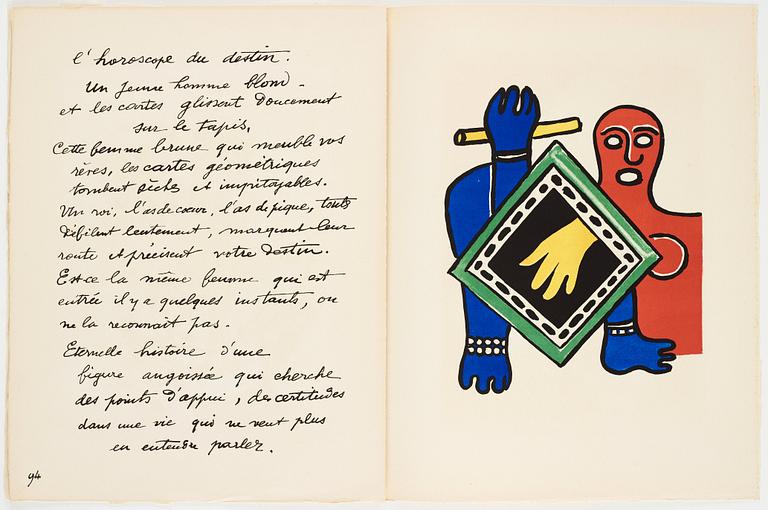 l'horoscope du destin.
Un jeune homme blond -
et les cartes glissent doucement
sur le tapis.
Cette femme brune qui meuble vos
rêves, les cartes géométriques
tombent sèches et impitoyables.
Un roi, l'as de coeur, l'as de pique, tout
défilent lentement, marquent leur
route et précisent votre destin.
Est ce la même femme qui est
entrée il y a quelques instants, on
ne la reconnait pas.
Eternelle histoire d'une
figure angoissée qui cherche
des points d'appui, des certitudes
dans une vie qui ne veut plus
en entendre parler.
94